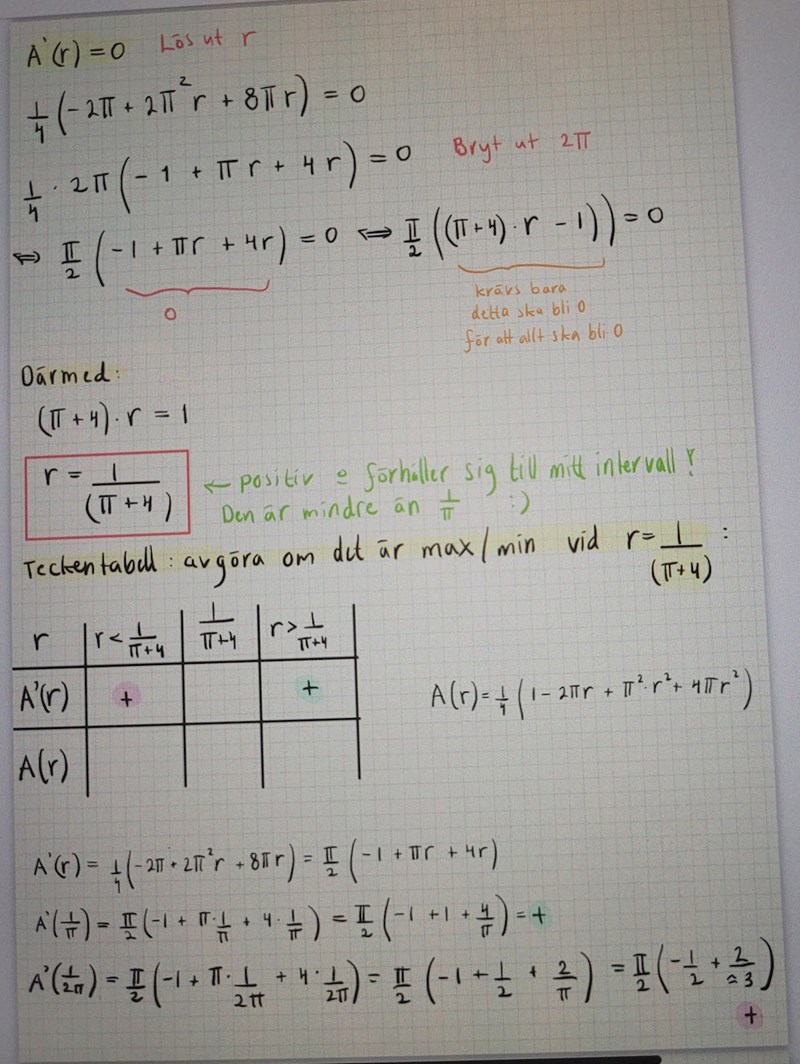 A'(r) = 0 Lös ut r
1/4 (-2π + 2π²r + 8πr) = 0
1/4 · 2π (-1 + πr + 4r) = 0 Bryt ut 2π
⇔ π/2 (-1 + πr + 4r) = 0 ⇔ π/2 ((π+4)·r - 1)) = 0
0
krävs bara
detta ska bli 0
för att allt ska bli 0
Därmed:
(π+4)·r = 1
r = 1/(π+4) ← positiv o förhåller sig till mitt intervall!
Den är mindre än 1/π :)
Teckentabell: avgöra om det är max/min vid r = 1/(π+4) :
r | r < 1/π+4 | 1/π+4 | r > 1/π+4
A'(r) | + | | +
A(r) = 1/4 (1 - 2πr + π²·r² + 4πr²)
A(r)
A'(r) = 1/4 (-2π + 2π²r + 8πr) = π/2 (-1 + πr + 4r)
A'(1/π) = π/2 (-1 + π·1/π + 4·1/π) = π/2 (-1 + 1 + 4/π) = +
A'(1/2π) = π/2 (-1 + π·1/2π + 4·1/2π) = π/2 (-1 + 1/2 + 2/π) = π/2 (-1/2 + 2/≈3)
+